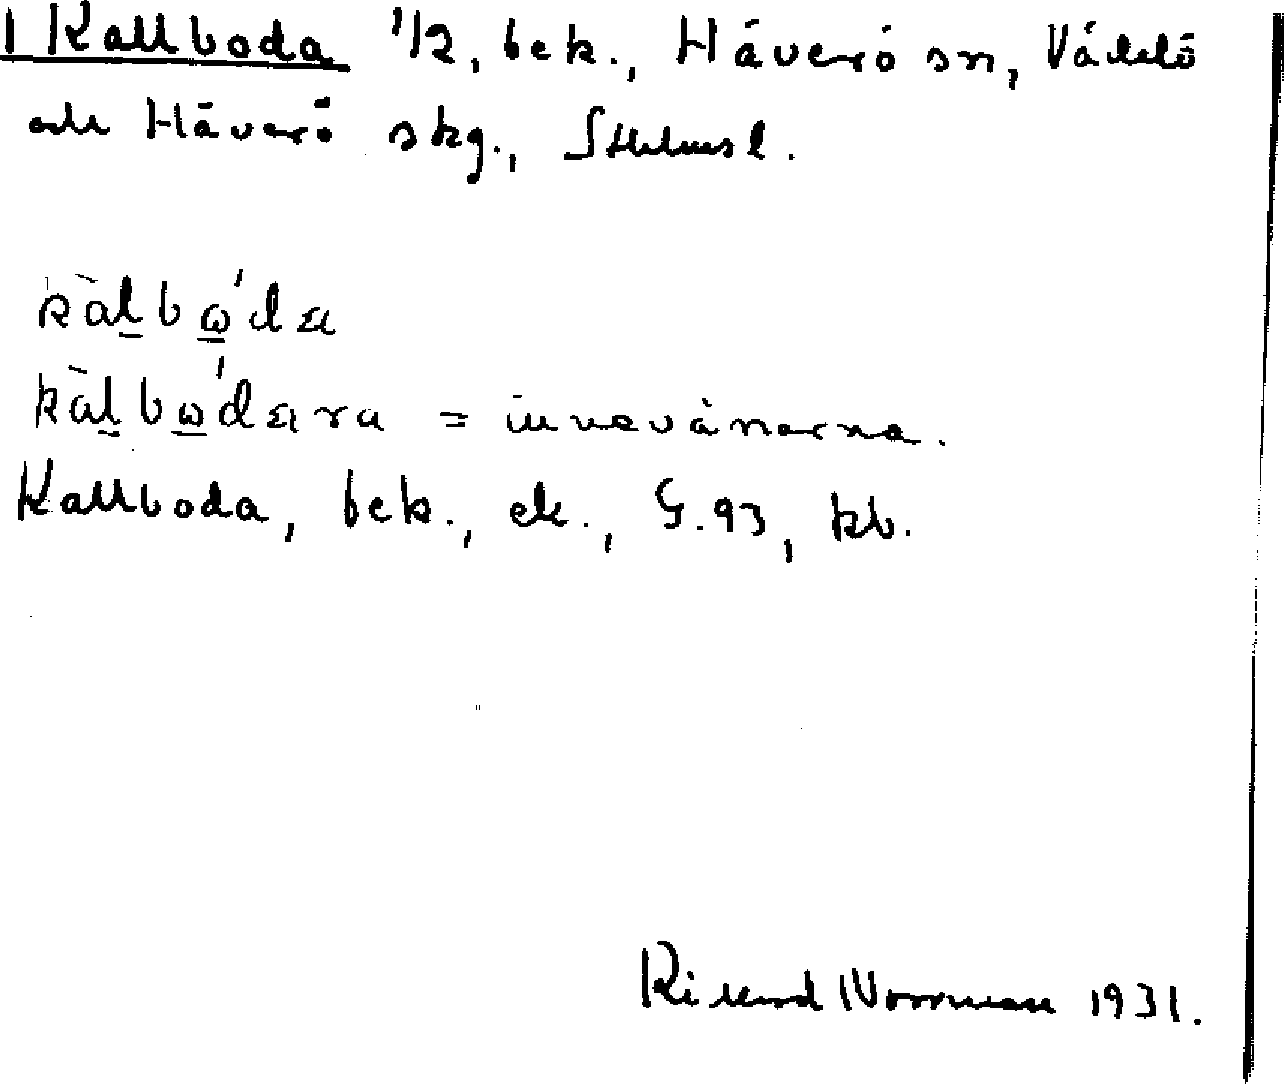 1 Kallboda 1/2, bek., Häverö sn, Väddö
och Häverö skg., Sthlmsl.
kàl̠bώ̠da
kàl̠bώ̠dara = innevånarna.
Kallboda, bek., ek., G. 93, kb.
Rikard Norrman 1931.